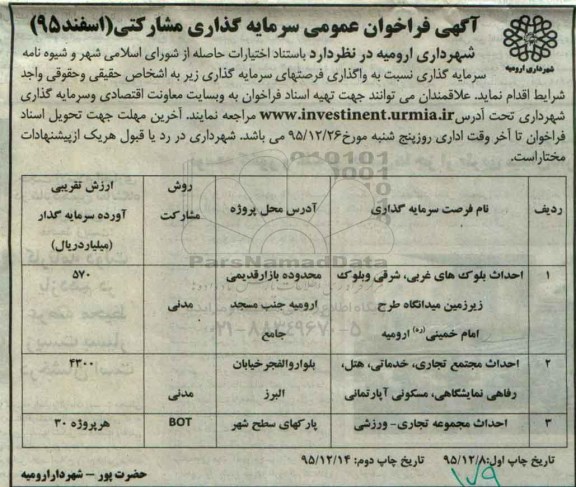 آگهی فراخوان عمومی سرمایه گذاری مشارکتی(اسفند۹۵)
شهرداری ارومیه
شهرداری ارومیه در نظردارد باستناد اختیارات حاصله از شورای اسلامی شهر و شیوه نامه
سرمایه گذاری نسبت به واگذاری فرصتهای سرمایه گذاری زیر به اشخاص حقیقی وحقوقی واجد
شرایط اقدام نماید. علاقمندان می توانند جهت تهیه اسناد فراخوان به وبسایت معاونت اقتصادی وسرمایه گذاری
شهرداری تحت آدرس www.investinent.urmia.ir مراجعه نمایند. آخرین مهلت جهت تحویل اسناد
فراخوان تا آخر وقت اداری روزپنج شنبه مورخ ۹۵/۱۲/۲۶ می باشد. شهرداری در رد یا قبول هریک ازپیشنهادات
مختاراست.
ردیف نام فرصت سرمایه گذاری آدرس محل پروژه روش مشارکت ارزش تقریبی آورده سرمایه گذار (میلیاردریال)
۱ احداث بلوک های غربی، شرقی وبلوک محدوده بازارقدیمی ۵۷۰
زیرزمین میدانگاه طرح ارومیه جنب مسجد مدنی
امام خمینی(ره) ارومیه جامع
۲ احداث مجتمع تجاری، خدماتی، هتل، بلوار والفجرخیابان ۴۳۰۰
رفاهی نمایشگاهی، مسکونی آپارتمانی البرز مدنی
۳ احداث مجموعه تجاری- ورزشی پارکهای سطح شهر BOT هرپروژه ۳۰
تاریخ چاپ اول: ۹۵/۱۲/۸ تاریخ چاپ دوم: ۹۵/۱۲/۱۴
حضرت پور – شهردارارومیه
ParsNamadData